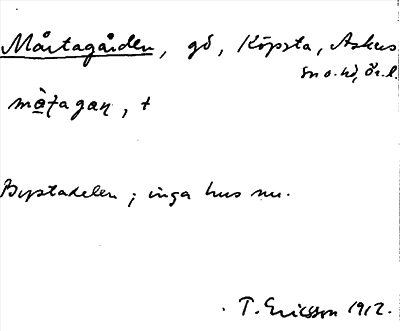 Mårtagården, gd, Köpsta, Askers
sn o. hd, Ör. l.
måtagaɳ, +
Bystadelen; inga hus nu.
T. Ericsson 1912.